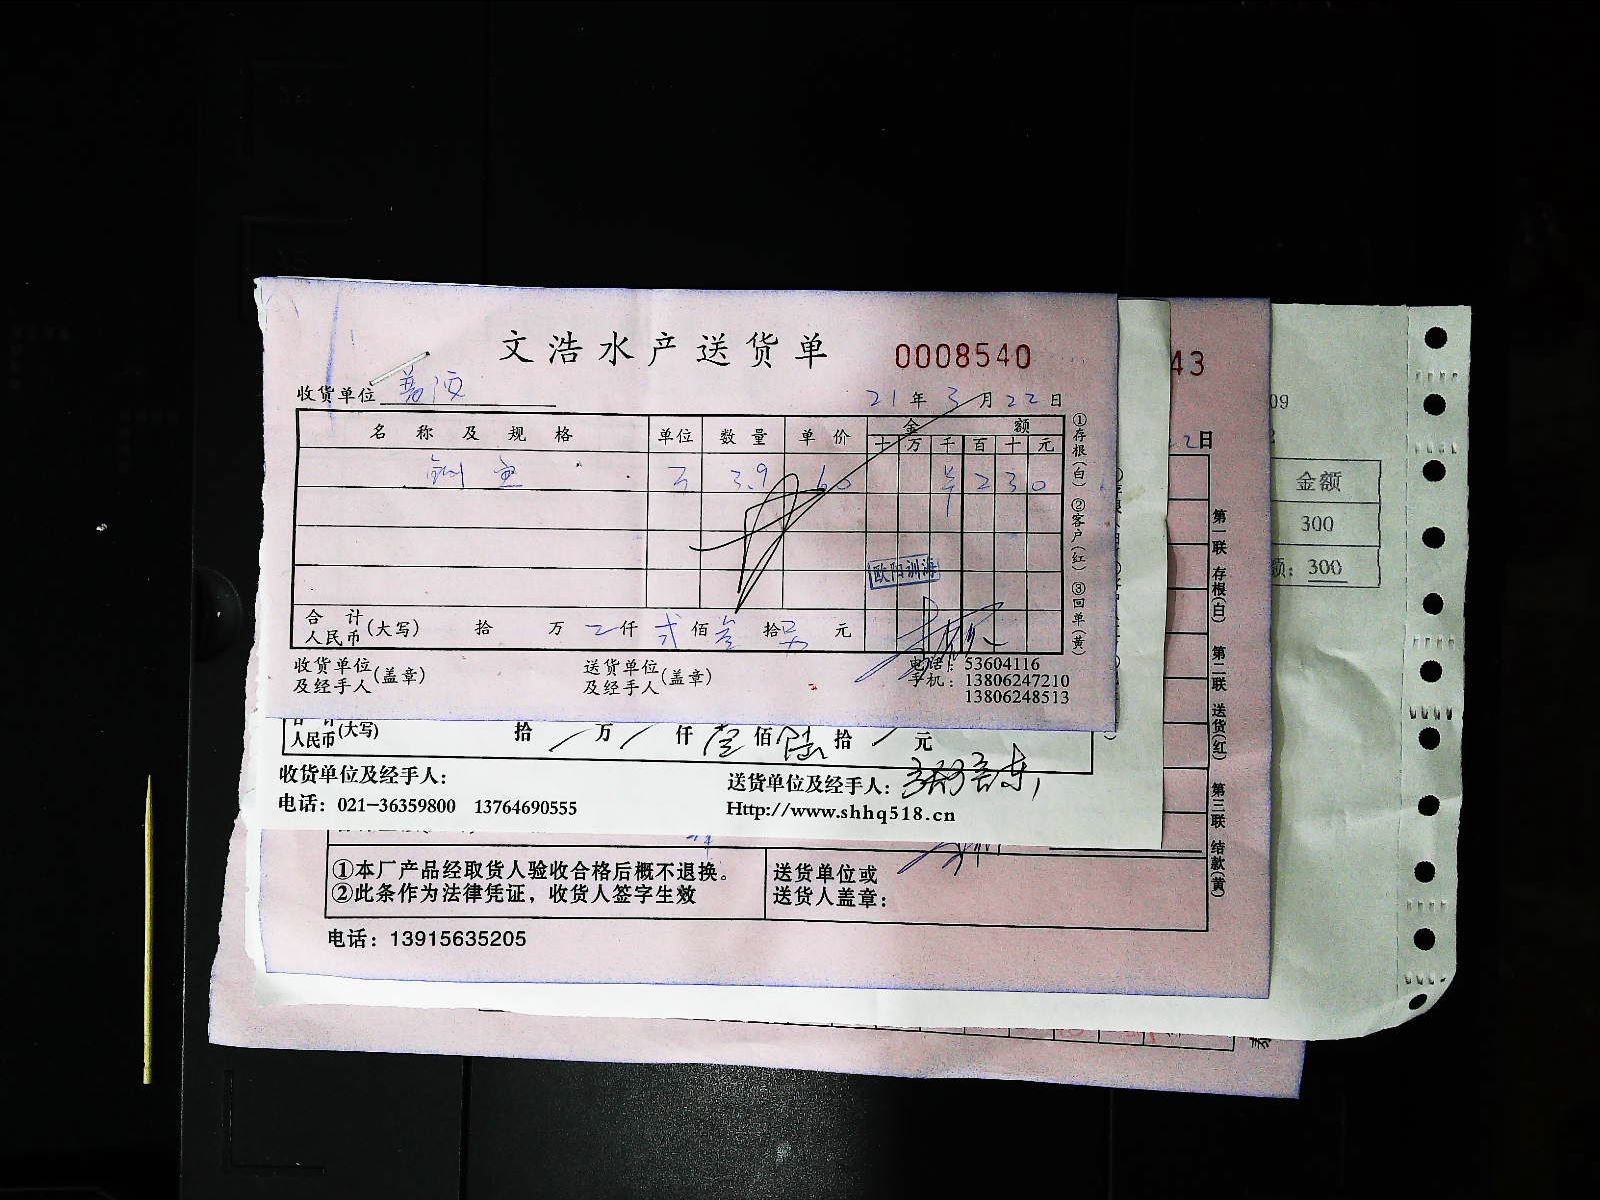 文浩水产送货单 0008540
收货单位 21年3月22日
名称及规格 单位 数量 单价 金额
十 万 千 百 十 元
鱼 3.9 60 ¥ 2 3 0
①存根(白) ②客户(红) ③回单(黄)
欧阳训海
合计人民币(大写) 拾 万 仟 弍 佰 叁 拾 元
收货单位及经手人(盖章) 送货单位及经手人(盖章)
电话: 53604116
手机: 13806247210
13806248513
43
2日
第一联 存根(白) 第二联 送货(红) 第三联 结款(黄)
09
2
金额
300
额: 300
合计人民币(大写) 拾 万 仟 壹 佰 陆 拾 元
收货单位及经手人: 送货单位及经手人:
电话: 021-36359800 13764690555 Http://www.shhq518.cn
①本厂产品经取货人验收合格后概不退换。
②此条作为法律凭证，收货人签字生效
送货单位或
送货人盖章:
电话: 13915635205